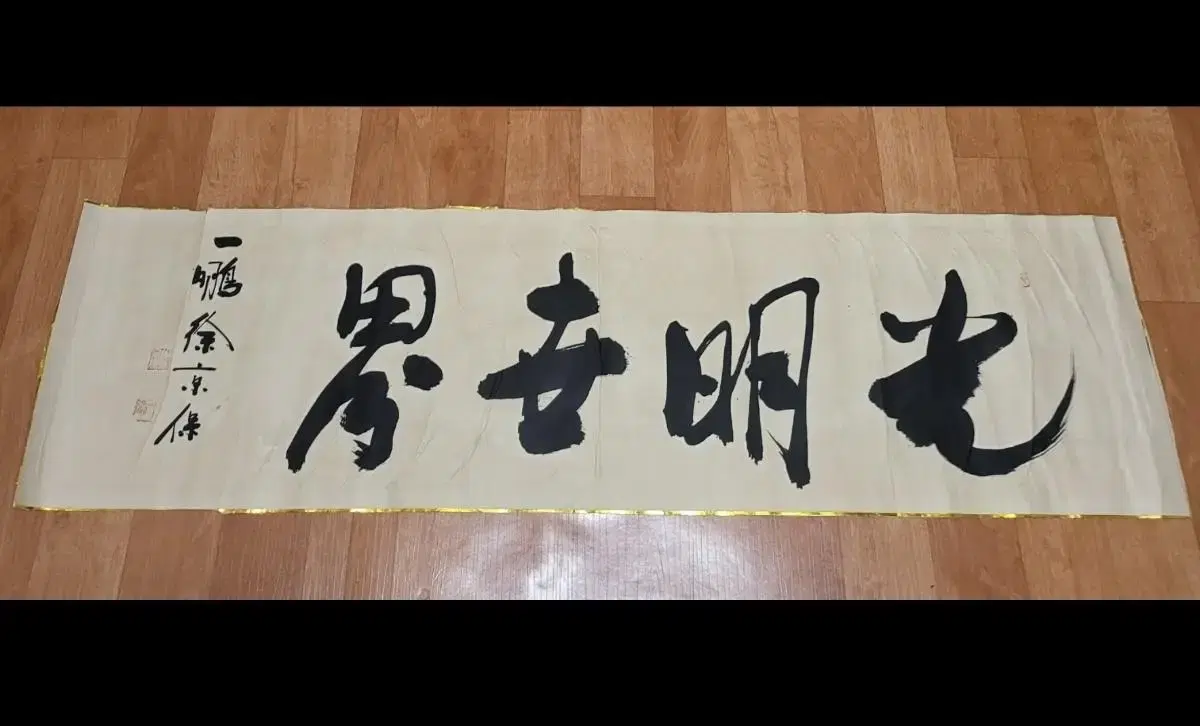 光明世界
一鵬徐京保